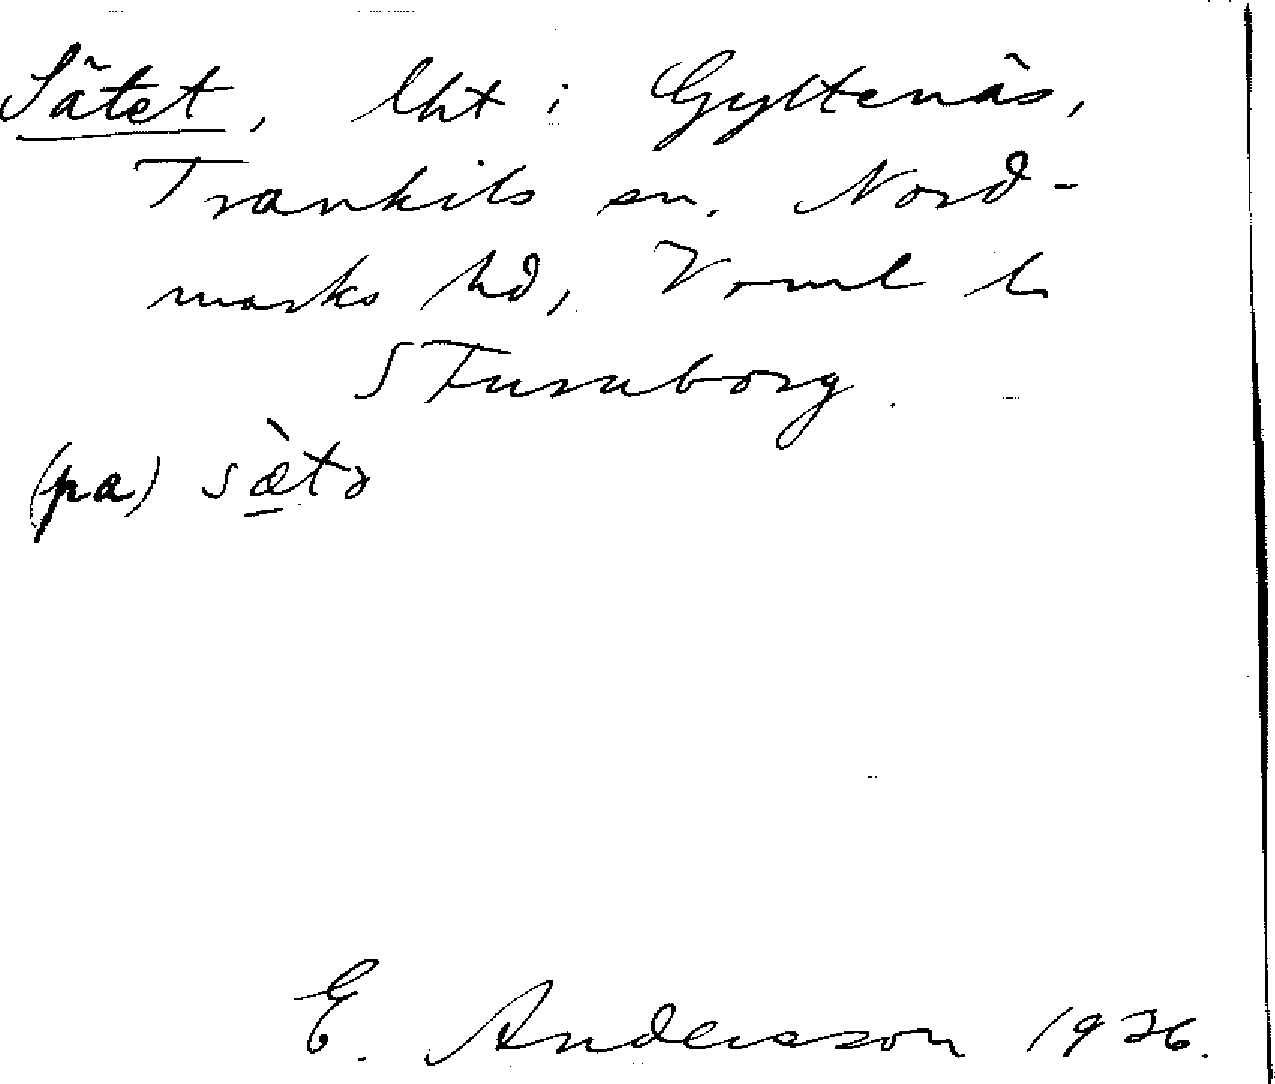 Sätet, lht i Gyltenäs,
Trankils sn. Nord-
marks hd, Vrml l.
S Furuborg.
(pa) sæ̀tə
E. Andersson 1926.